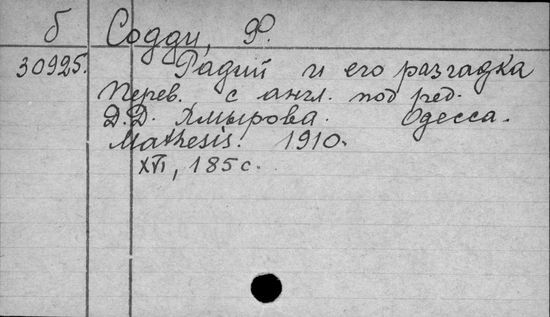 б Содди, Ф.
30925. Радий и его разгадка
Перев. с англ. под ред.
Д.Д. Хмырова. Одесса.
Mathesis. 1910.
XVI, 185 с.